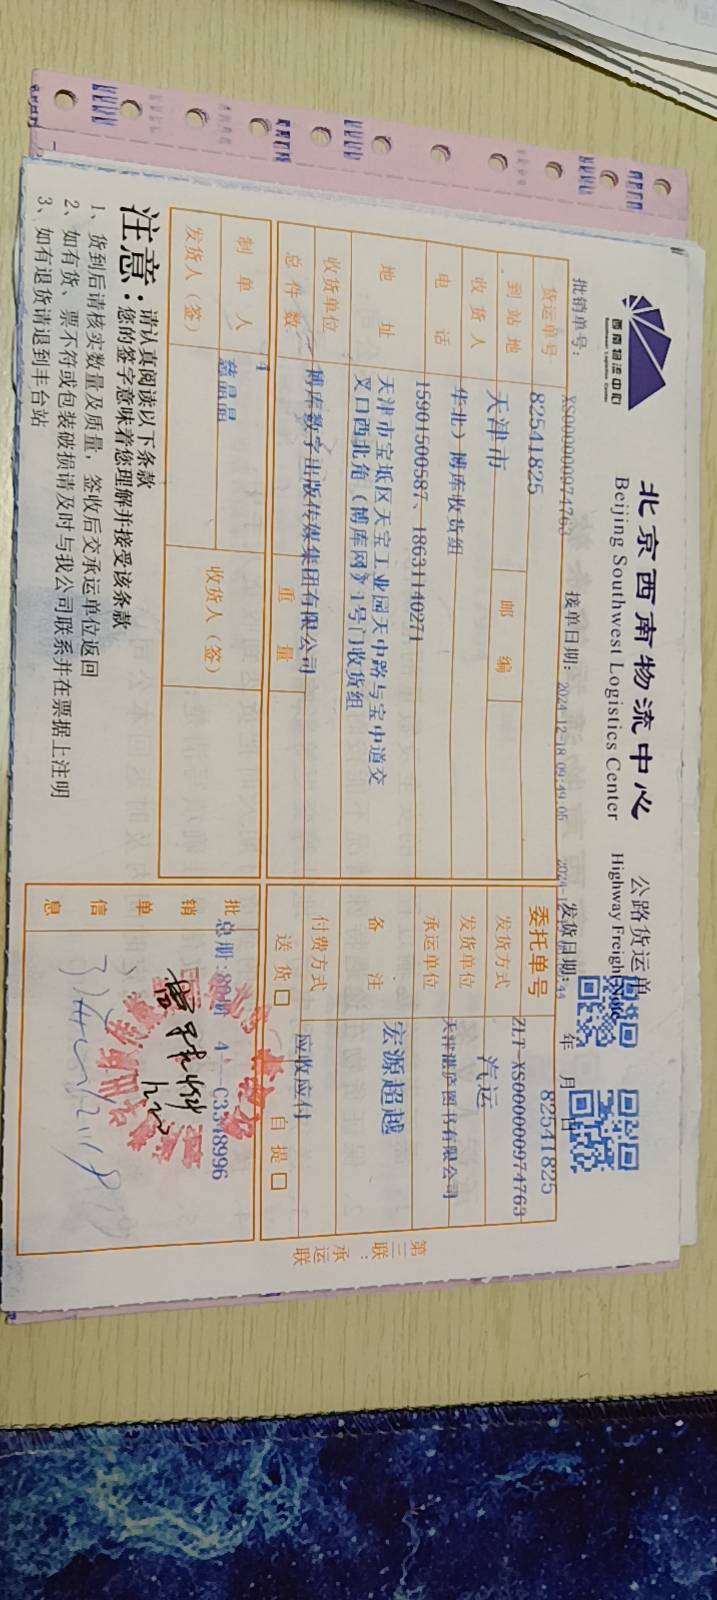 西南物流中心
Southwest Logistics Center
北京西南物流中心
Beijing Southwest Logistics Center
公路货运单
Highway Freight Note
批销单号：XS000000974763
接单日期：2024-12-18 09:49:06
发货日期：
年 月 日
货运单号 82541825
委托单号 82541825
ZLT-XS000000974763
到站地 天津市 邮编
发货方式 汽运
收货人 华北）博库收货组
发货单位 天津湛庐图书有限公司
电话 15901500587、18631140271
承运单位
地址 天津市宝坻区天宝工业园天中路与宝中道交
叉口西北角（博库网）1号门收货组
备注 宏源超越
收货单位 博库数字出版传媒集团有限公司
付费方式 应收应付
总件数 4 重量
送货□ 自提□
制单人
发货人（签）
收货人（签）
批销单信息
总册:
4--C3348996
第三联：承运联
注意：请认真阅读以下条款
您的签字意味着您理解并接受该条款
1、货到后请核实数量及质量，签收后交承运单位返回
2、如有货、票不符或包装破损请及时与我公司联系并在票据上注明
3、如有退货请退到丰台站